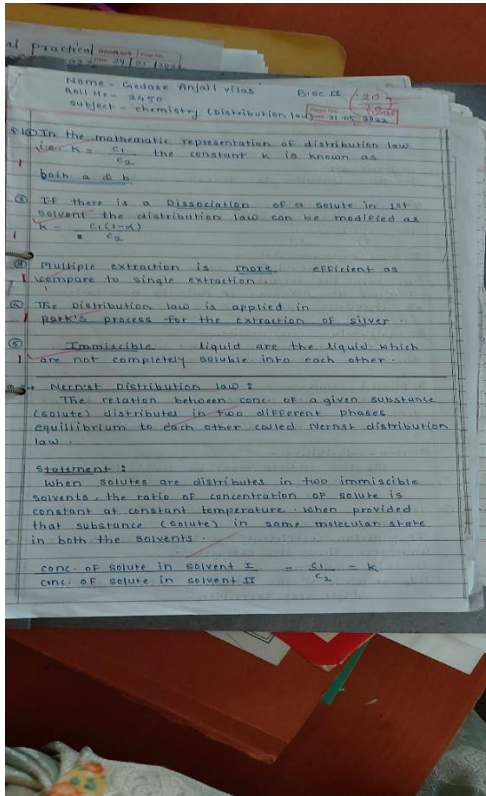 al practical
Name - Godase Anjali vilas B.sc II
Roll No - 2450
Subject - chemistry (Distribution law)
Q.1 ① In the mathematic representation of distribution law
i.e. K = C1/C2 the constant K is known as
both a & b
② If there is a Dissociation of a solute in 1st
solvent the distribution law can be modified as
K = C1(1-α)/C2
③ Multiple extraction is more efficient as
compare to single extraction.
④ The Distribution law is applied in
park's process for the extraction of silver.
⑤ Immiscible liquid are the liquid which
are not completely soluble into each other.
Nern'st Distribution law :
The relation between conc. of a given substance
(solute) distributes in two different phases
equillibrium to each other called Nernst distribution
law.
Statement :
When solutes are distributes in two immiscible
solvents, the ratio of concentration of solute is
constant at constant temperature. When provided
that substance (solute) in same molecular state
in both the solvents.
conc. of solute in solvent I = C1 = K
conc. of solute in solvent II C2